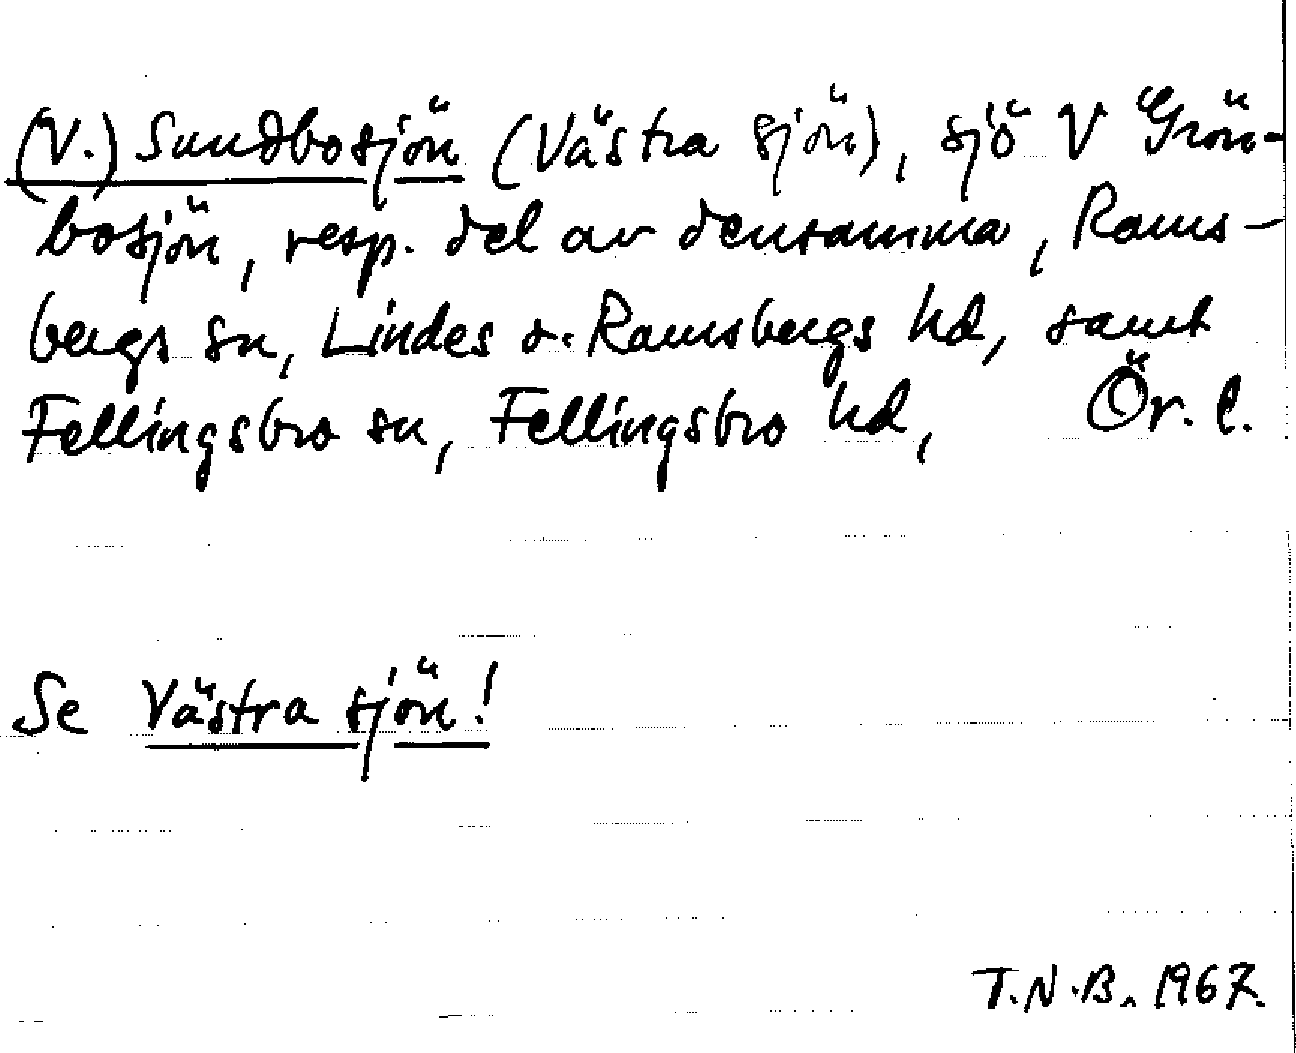 (V.) Sundbosjön (Västra sjön), sjö V Grön-
bosjön, resp. del av densamma, Rams-
bergs sn, Lindes o. Ramsbergs hd, samt
Fellingsbro sn, Fellingsbro hd, Ör. l.
Se Västra sjön!
T.N.B. 1967.